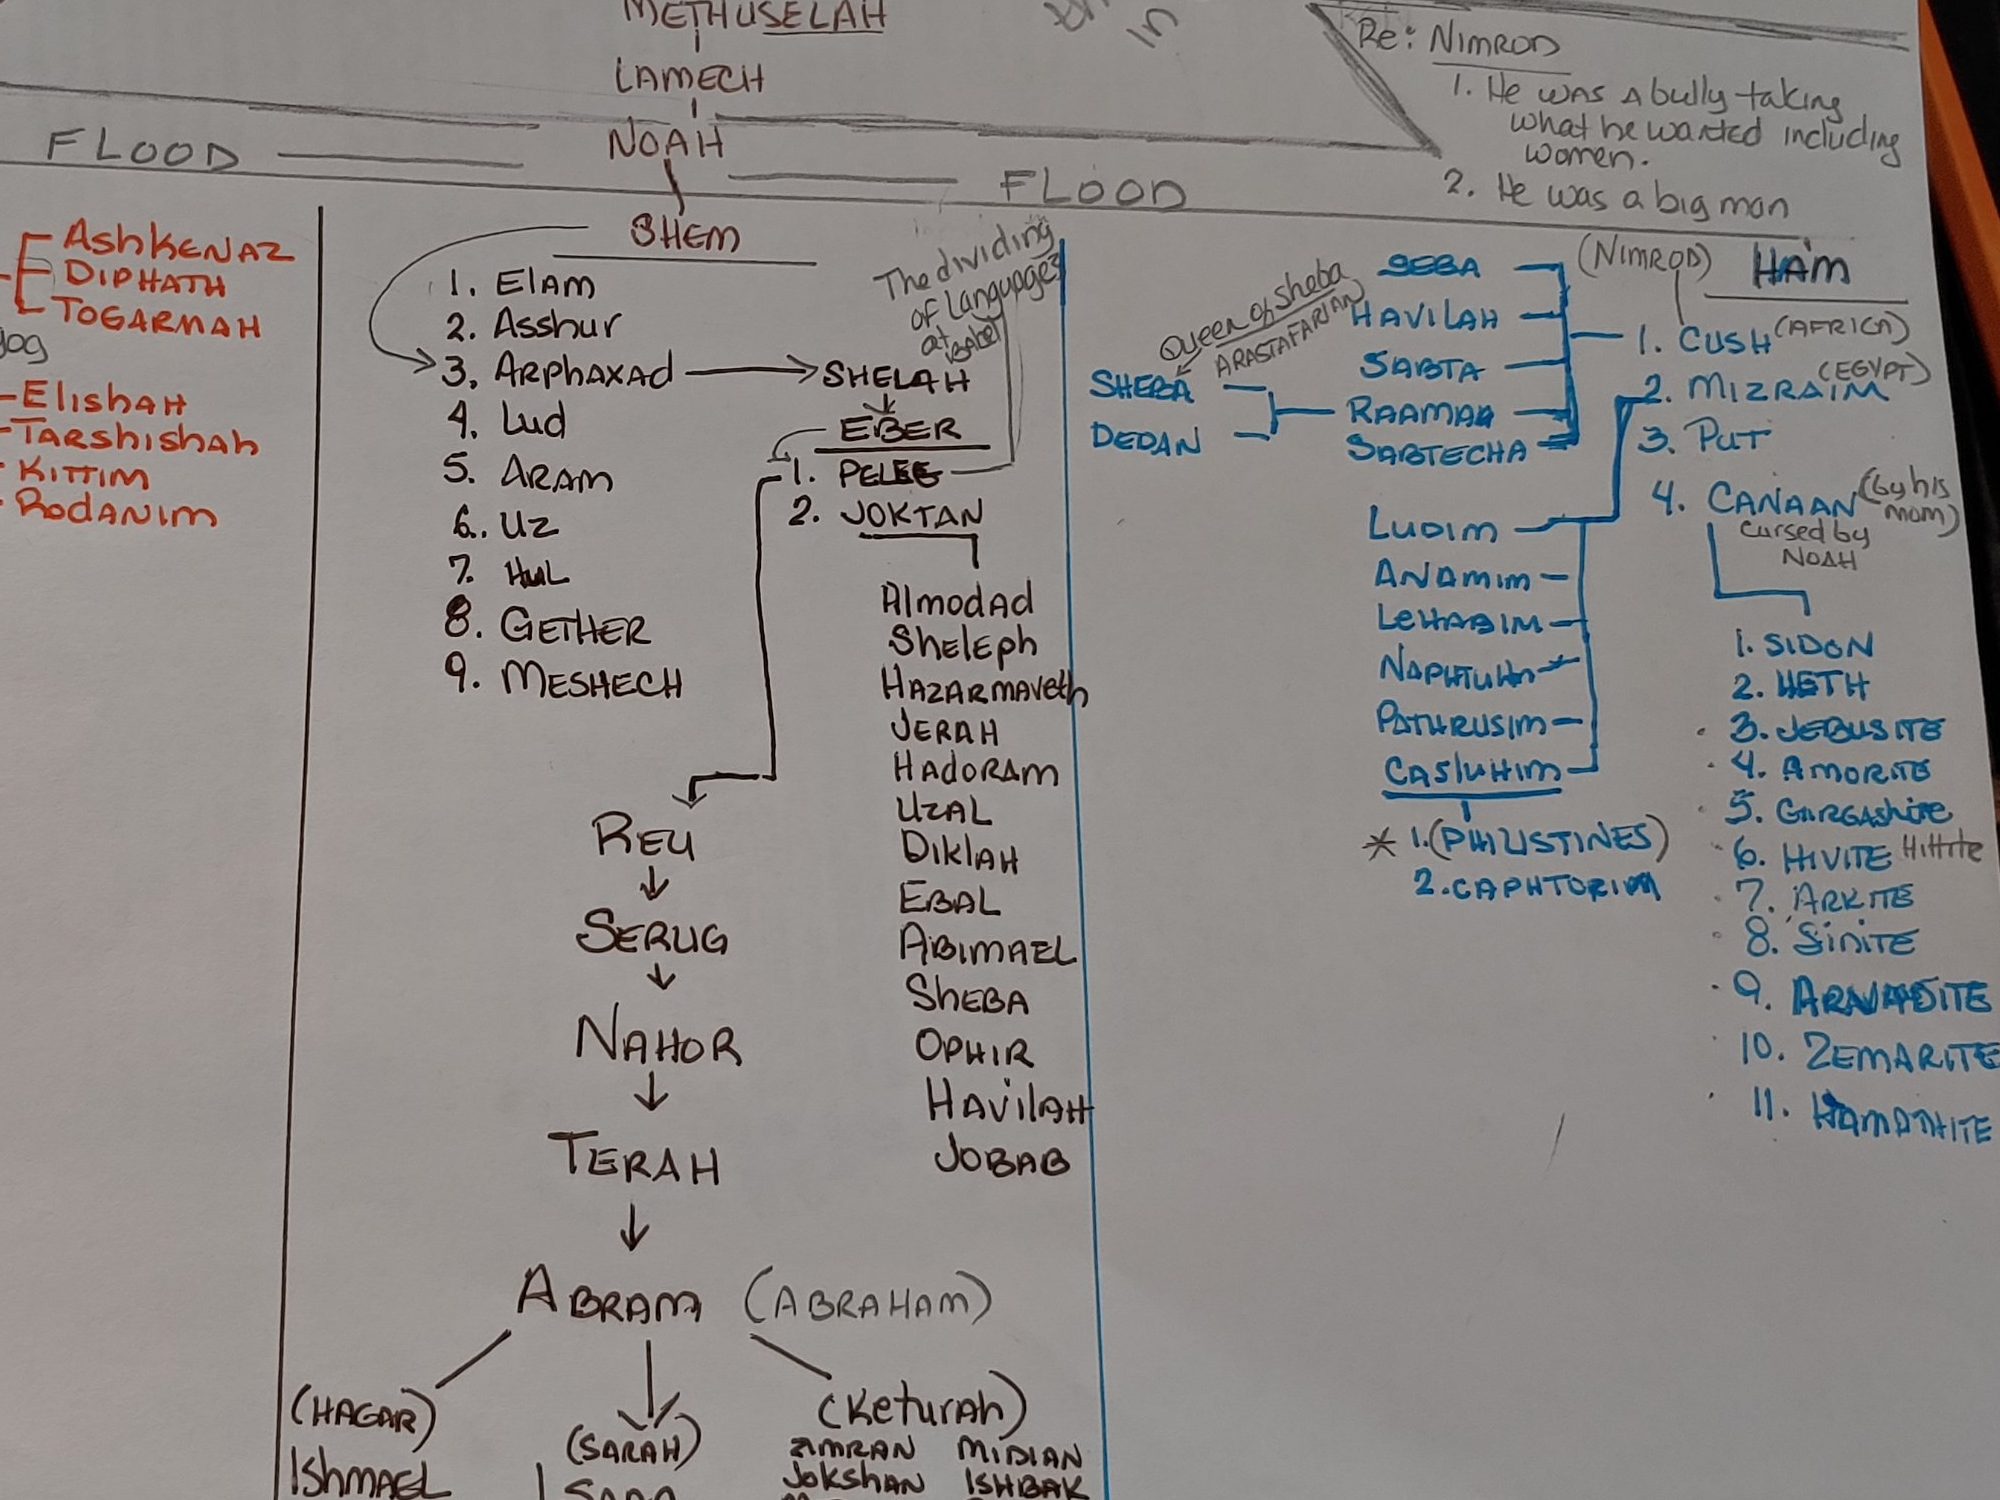 METHUSELAH
LAMECH
NOAH
FLOOD
FLOOD
Re: NIMROD
1. He was a bully taking
what he wanted including
women.
2. He was a big man
ASHKENAZ
DIPHATH
TOGARMAH
Elishah
TARSHISHAH
KITTIM
RODANIM
SHEM
1. Elam
2. Asshur
3. ARPHAXAD
4. Lud
5. ARAM
6. UZ
7. HUL
8. GETHER
9. MESHECH
SHELAH
EBER
1. PELEG
2. JOKTAN
The dividing
of languages
at
BABEL
Almodad
Sheleph
HAZARMAVETH
JERAH
HADORAM
UZAL
DIKLAH
EBAL
ABIMAEL
SHEBA
OPHIR
HAVILAH
JOBAB
REU
SERUG
NAHOR
TERAH
ABRAM (ABRAHAM)
(HAGAR)
ISHMAEL
(SARAH)
(Keturah)
ZIMRAN MIDIAN
JOKSHAN ISHBAK
(NIMROD) HAM
1. CUSH (AFRICA)
2. MIZRAIM (EGYPT)
3. PUT
4. CANAAN (by his
mom)
cursed by
NOAH
SEBA
HAVILAH
SABTA
RAAMAH
SABTECHA
Queen of Sheba
ARASTAFARIAN
SHEBA
DEDAN
LUDIM
ANAMIM
LEHABIM
PATHRUSIM
CASLUHIM
* 1. (PHILISTINES)
2. CAPHTORIM
1. SIDON
2. HETH
3. JEBUSITE
4. AMORITE
5. GIRGASHITE
6. HIVITE Hittite
7. ARKITE
8. SINITE
9. ARVADITE
10. ZEMARITE
11. HAMATHITE